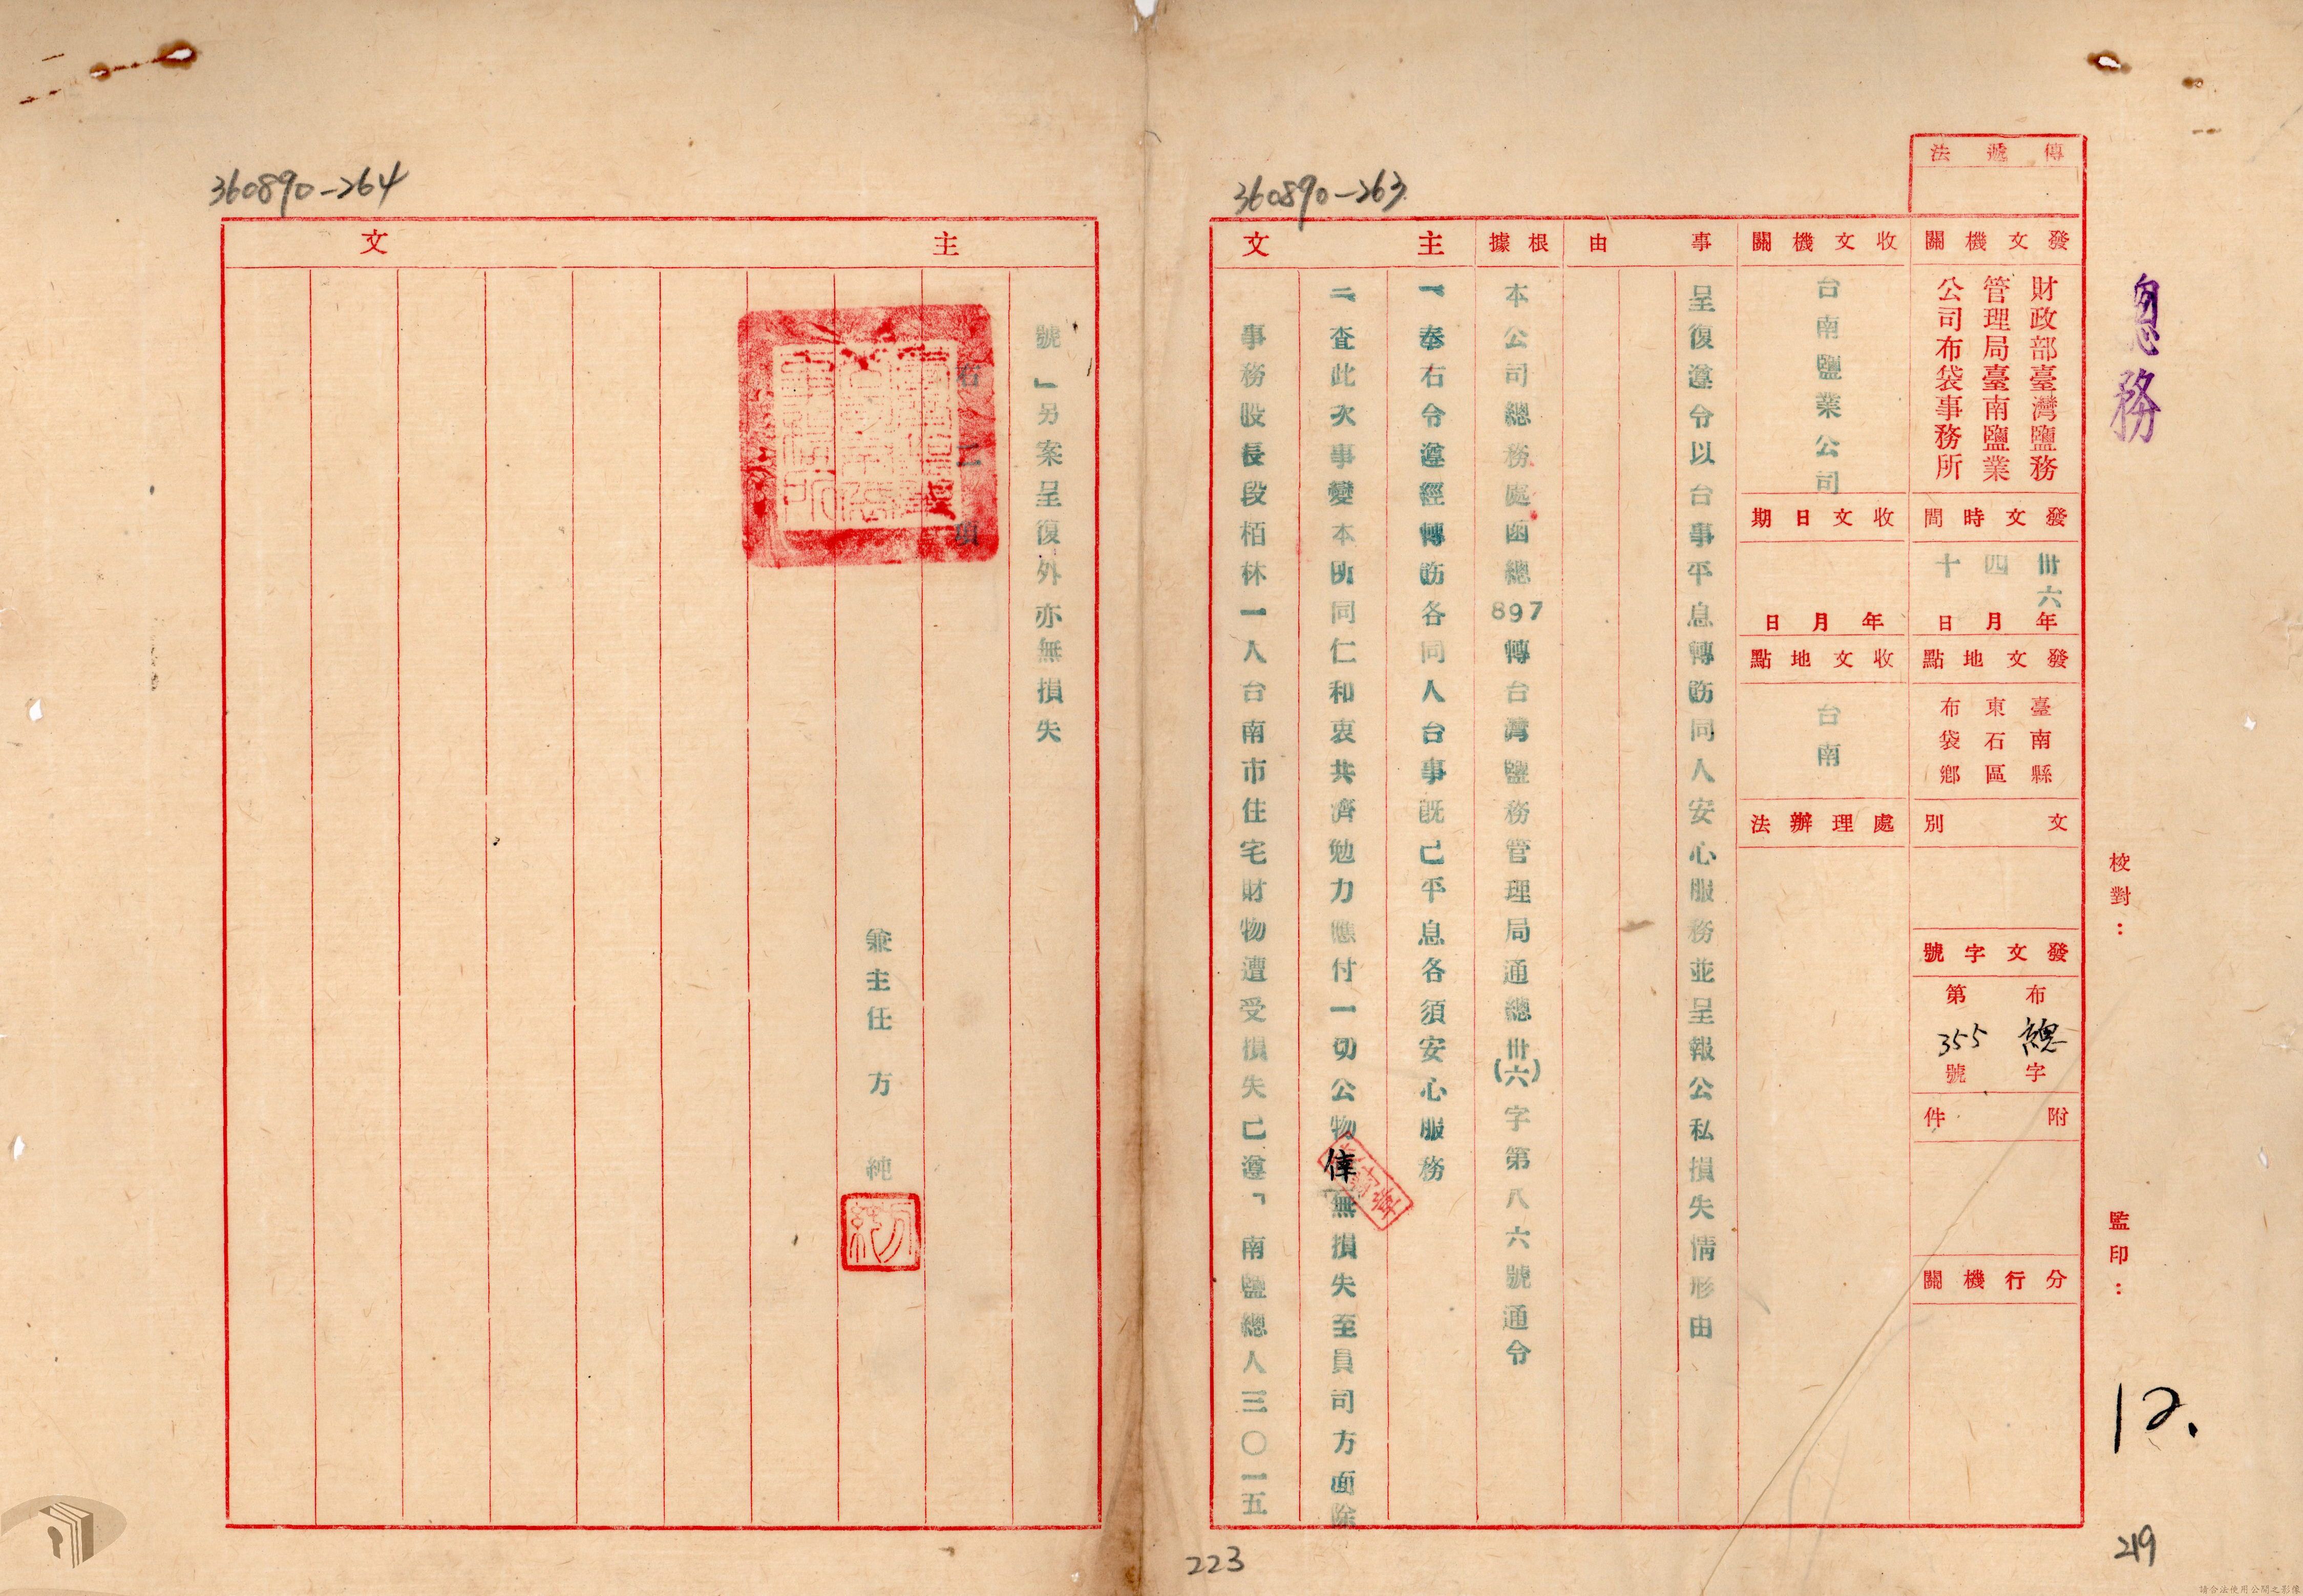 360890-263
傳遞法
發文機關
財政部臺灣鹽務
管理局臺南鹽業
公司布袋事務所
發文時間
卅六年
四月
十日
發文地點
臺南縣
東石區
布袋鄉
文別
發文字號
布總字
第355號
附件
分行機關
校對：
監印：
12.
219
收文機關
台南鹽業公司
收文日期
年月日
收文地點
台南
處理辦法
事由
呈復遵令以台事平息轉飭同人安心服務並呈報公私損失情形由
根據
本公司總務處函總897轉台灣鹽務管理局通總卅(六)字第八六號通令
主文
一、奉右令遵經轉飭各同人台事既已平息各須安心服務
二、查此次事變本所同仁和衷共濟勉力應付一切公物倖無損失至員司方面除
事務股長段栢林一人台南市住宅財物遭受損失已遵「南鹽總人三〇一五
223
360890-264
主文
號」另案呈復外亦無損失
右二項
兼主任 方 純
請合法使用公開之影像